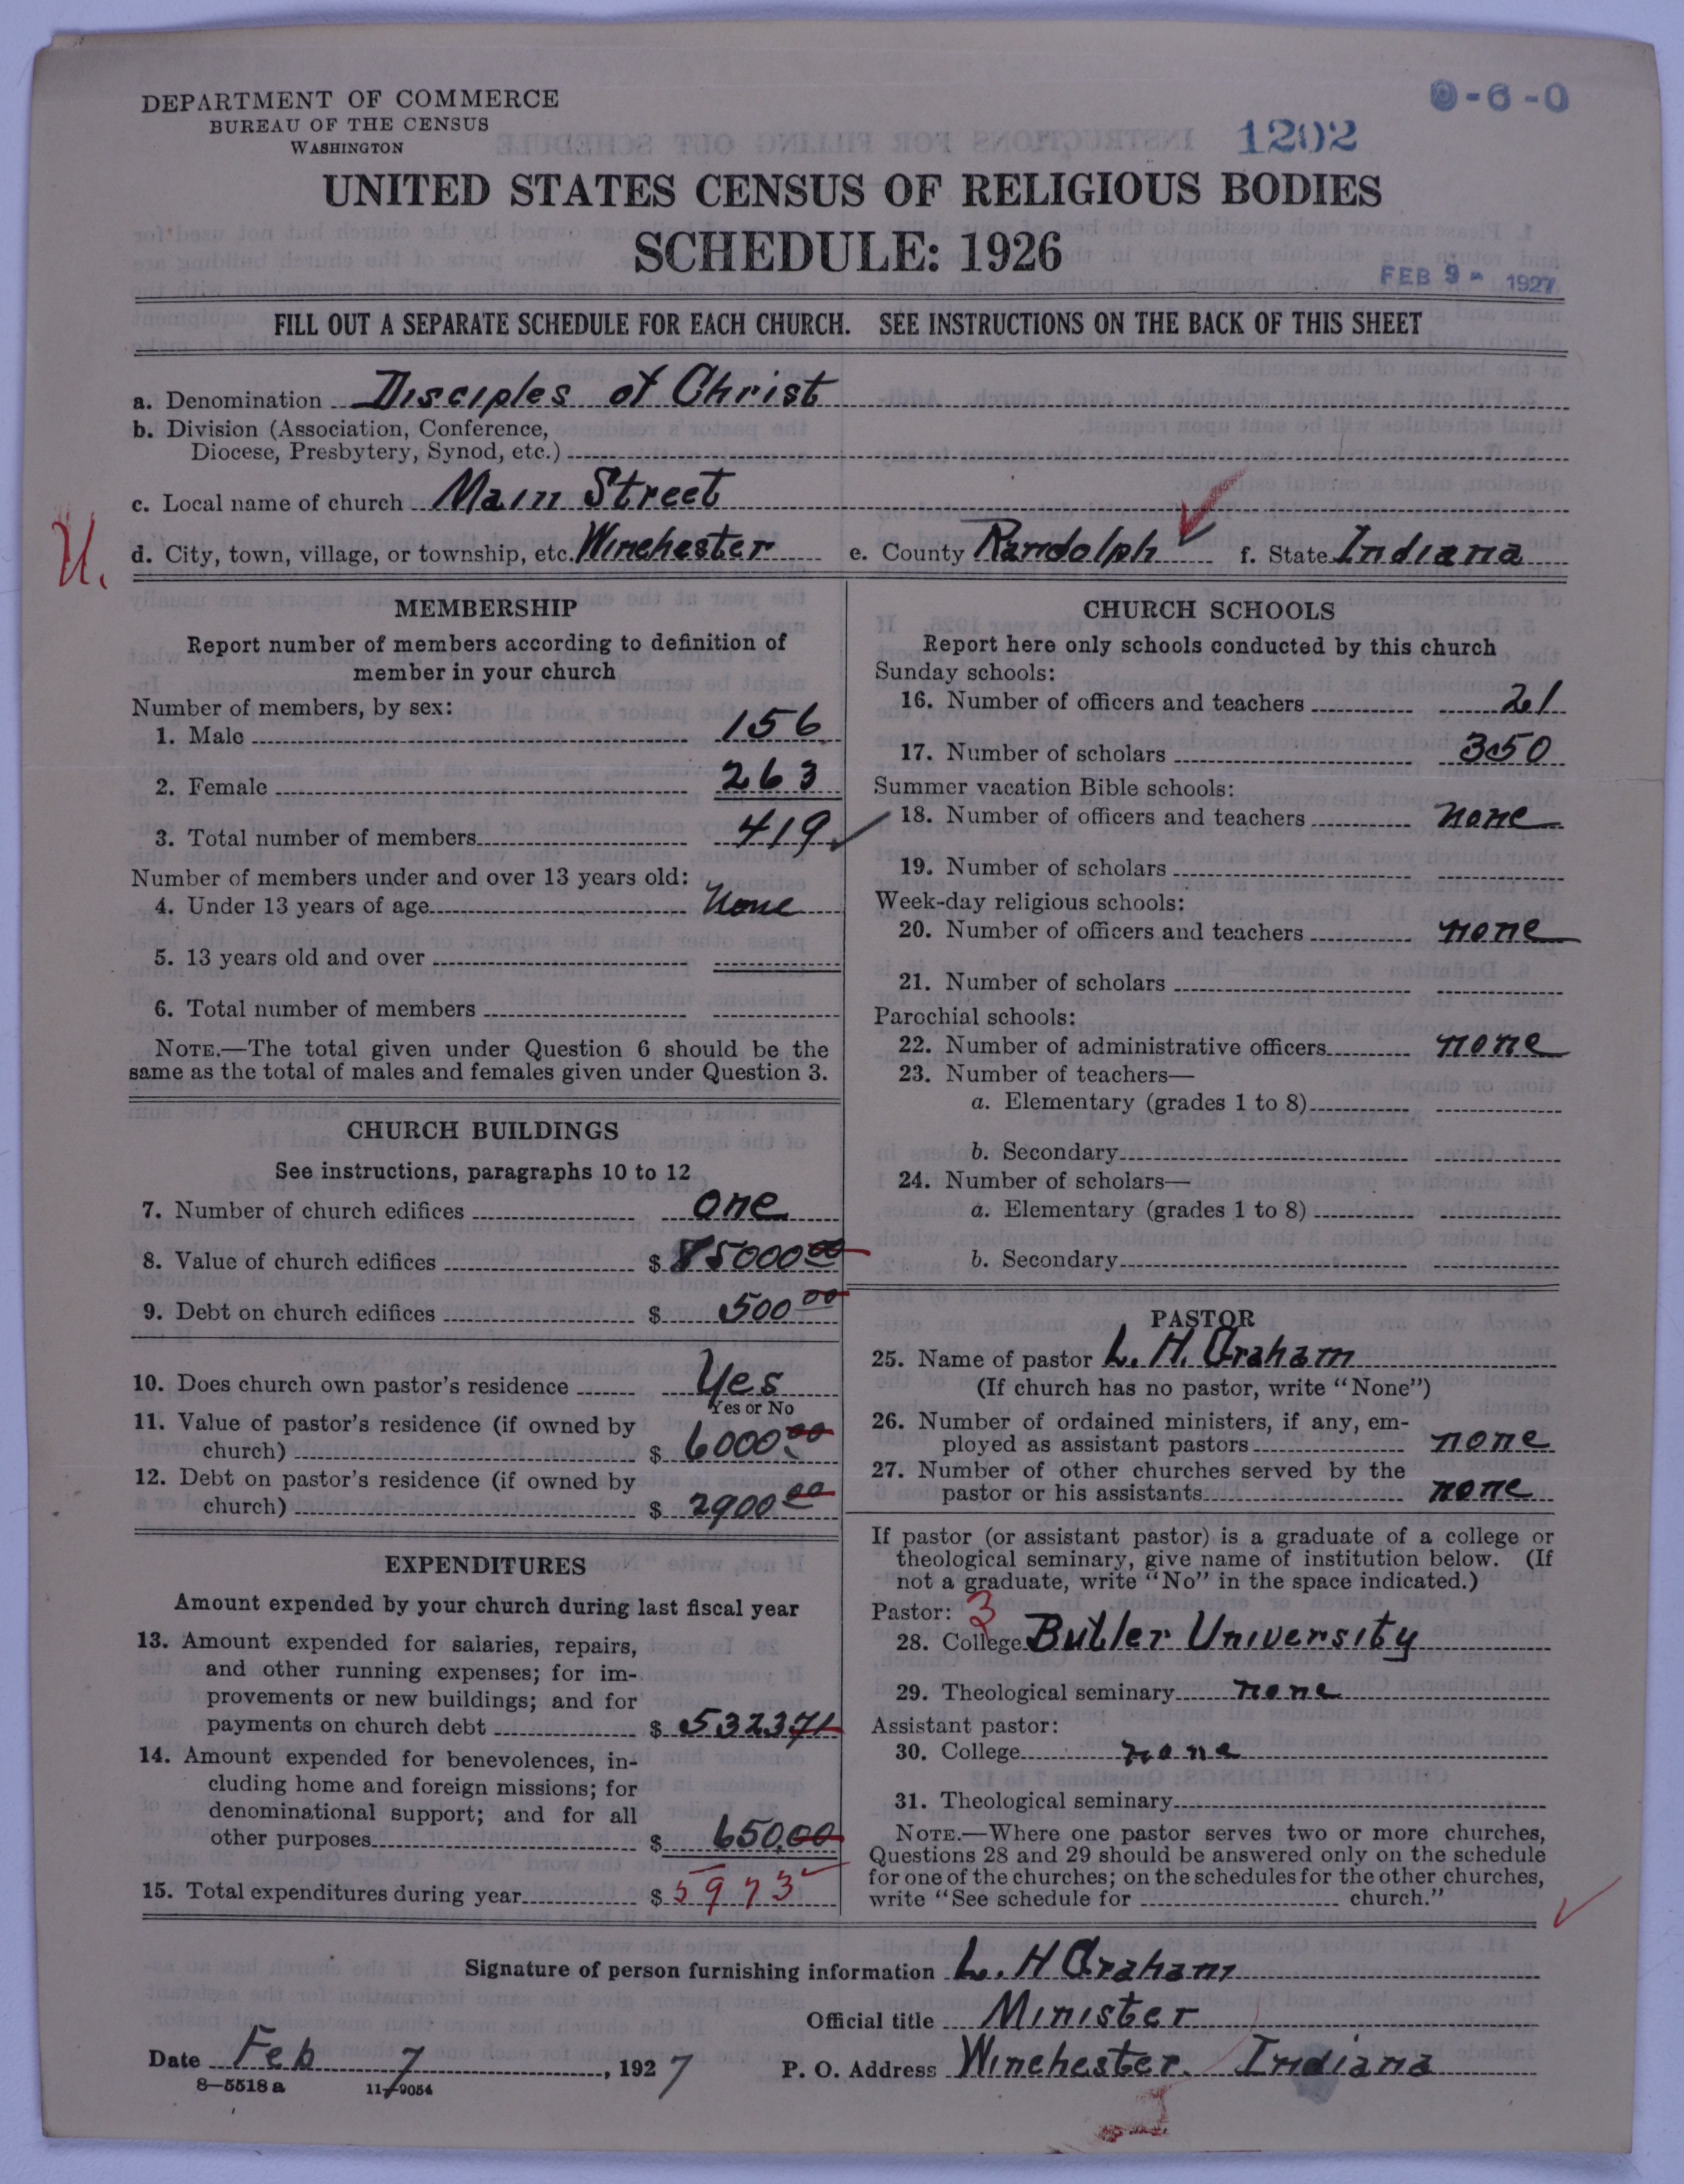 DEPARTMENT OF COMMERCE
BUREAU OF THE CENSUS
WASHINGTON
-6-0
1202
UNITED STATES CENSUS OF RELIGIOUS BODIES
SCHEDULE: 1926
FEB 9 - 1927
FILL OUT A SEPARATE SCHEDULE FOR EACH CHURCH. SEE INSTRUCTIONS ON THE BACK OF THIS SHEET
a. Denomination Disciples of Christ
b. Division (Association, Conference,
Diocese, Presbytery, Synod, etc.)
c. Local name of church Main Street
U.
d. City, town, village, or township, etc. Winchester e. County Randolph f. State Indiana
MEMBERSHIP
Report number of members according to definition of
member in your church
Number of members, by sex:
1. Male 156
2. Female 263
3. Total number of members 419
Number of members under and over 13 years old:
4. Under 13 years of age None
5. 13 years old and over
6. Total number of members
NOTE.—The total given under Question 6 should be the
same as the total of males and females given under Question 3.
CHURCH BUILDINGS
See instructions, paragraphs 10 to 12
7. Number of church edifices one
8. Value of church edifices $ 85000 00
9. Debt on church edifices $ 500 00
10. Does church own pastor's residence Yes
Yes or No
11. Value of pastor's residence (if owned by
church) $ 6000 00
12. Debt on pastor's residence (if owned by
church) $ 2900 00
EXPENDITURES
Amount expended by your church during last fiscal year
13. Amount expended for salaries, repairs,
and other running expenses; for im-
provements or new buildings; and for
payments on church debt $ 5323 71
14. Amount expended for benevolences, in-
cluding home and foreign missions; for
denominational support; and for all
other purposes $ 650.00
15. Total expenditures during year $ 5973
CHURCH SCHOOLS
Report here only schools conducted by this church
Sunday schools:
16. Number of officers and teachers 21
17. Number of scholars 350
Summer vacation Bible schools:
18. Number of officers and teachers none
19. Number of scholars
Week-day religious schools:
20. Number of officers and teachers none
21. Number of scholars
Parochial schools:
22. Number of administrative officers none
23. Number of teachers—
a. Elementary (grades 1 to 8)
b. Secondary
24. Number of scholars—
a. Elementary (grades 1 to 8)
b. Secondary
PASTOR
25. Name of pastor L. H. Graham
(If church has no pastor, write "None")
26. Number of ordained ministers, if any, em-
ployed as assistant pastors none
27. Number of other churches served by the
pastor or his assistants none
If pastor (or assistant pastor) is a graduate of a college or
theological seminary, give name of institution below. (If
not a graduate, write "No" in the space indicated.)
Pastor: 3
28. College Butler University
29. Theological seminary none
Assistant pastor:
30. College none
31. Theological seminary
NOTE.—Where one pastor serves two or more churches,
Questions 28 and 29 should be answered only on the schedule
for one of the churches; on the schedules for the other churches,
write "See schedule for church."
Signature of person furnishing information L. H Graham
Official title Minister
Date Feb 7, 1927 P. O. Address Winchester Indiana
8—5518 a 11—9054